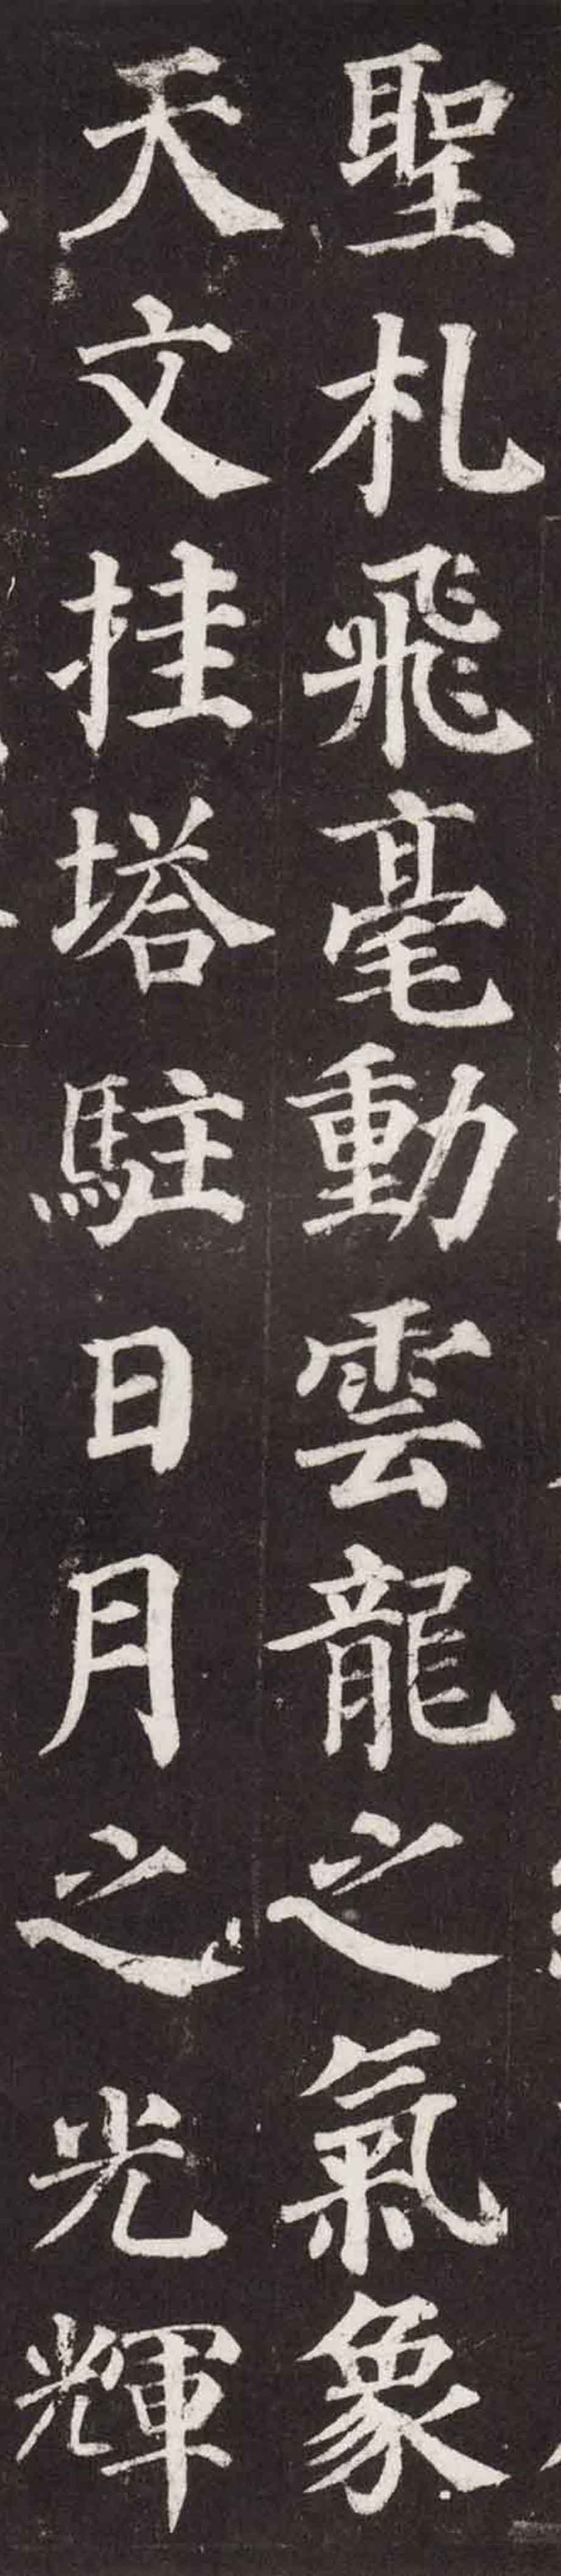 聖札飛毫動雲龍之氣象
天文挂塔駐日月之光輝